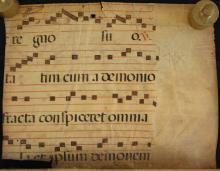 re gno su o
ta tim cum a demonio
fracta conspiceret omnia
et ipsum demonem